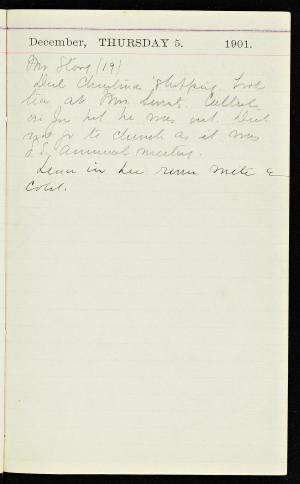 December, THURSDAY 5. 1901.
Mr Stong (19)
Did Christmas shopping. Took
tea at Mrs. Called
on Jos but he was out. Did
not go to church as it was
S.S. annual meeting.
in her room with a
cold.